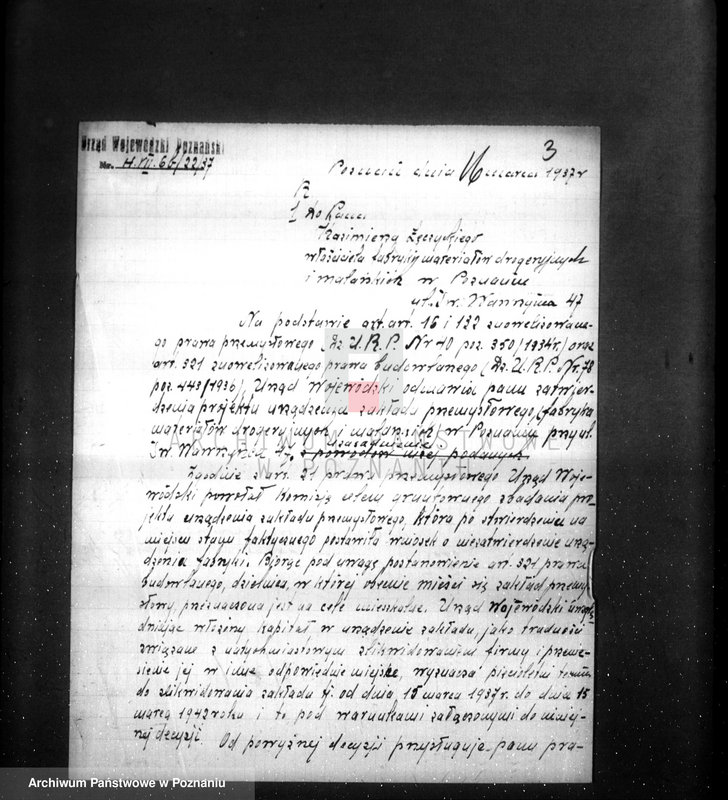 3
Urząd Wojewódzki Poznański
Nr. H.VII.6b/22/37
Poznań dnia 16 marca 1937 r
1/ do Pana
Kazimierza
właściciela fabryki materiałów drogeryjnych
i malarskich w Poznaniu
ul. Św. Wawrzyńca 47
Na podstawie art. art. 16 i 132 znowelizowane-
go prawa przemysłowego (Dz. U. R. P. Nr 40 poz. 350/1934 r.) oraz
art. 321 znowelizowanego prawa budowlanego (Dz. U. R. P. Nr.
poz. 1936), Urząd Wojewódzki odmawia panu zatwier-
dzenia projektu urządzenia zakładu przemysłowego, (fabryka
materiałów drogeryjnych i malarskich w Poznaniu przy ul.
Św. Wawrzyńca 47, z powodów niżej podanych.
uzasadnienie
Zgodnie z art. 21 prawa przemysłowego Urząd Woje-
wódzki powołał komisję celem gruntownego zbadania pro-
jektu urządzenia zakładu przemysłowego, która po stwierdzeniu na
miejscu stanu faktycznego postawiła wniosek o niezatwierdzenie urzą-
dzenia fabryki. Biorąc pod uwagę postanowienie art. 321 prawa
budowlanego, dzielnica, w której obecnie mieści się zakład przemy-
słowy, przeznaczona jest na cele mieszkalne. Urząd Wojewódzki
włożony kapitał, w urządzenie zakładu, jako trudności
związane z natychmiastowym zlikwidowaniem firmy i przenie-
sienie jej w inne odpowiednie miejsce, wyznacza pięcioletni termin
do zlikwidowania zakładu tj. od dnia 15 marca 1937 r. do dnia 15
marca 1942 roku i to pod warunkami załączonymi do niniej-
nej decyzji.
Od powyższej decyzji przysługuje panu pra-
ARCHIWUM PAŃSTWOWE
W POZNANIU
Archiwum Państwowe w Poznaniu